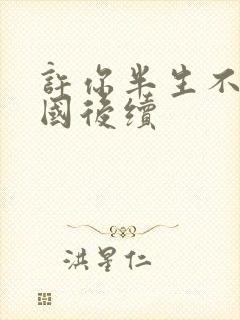 許你半生不
國後續
洪星仁